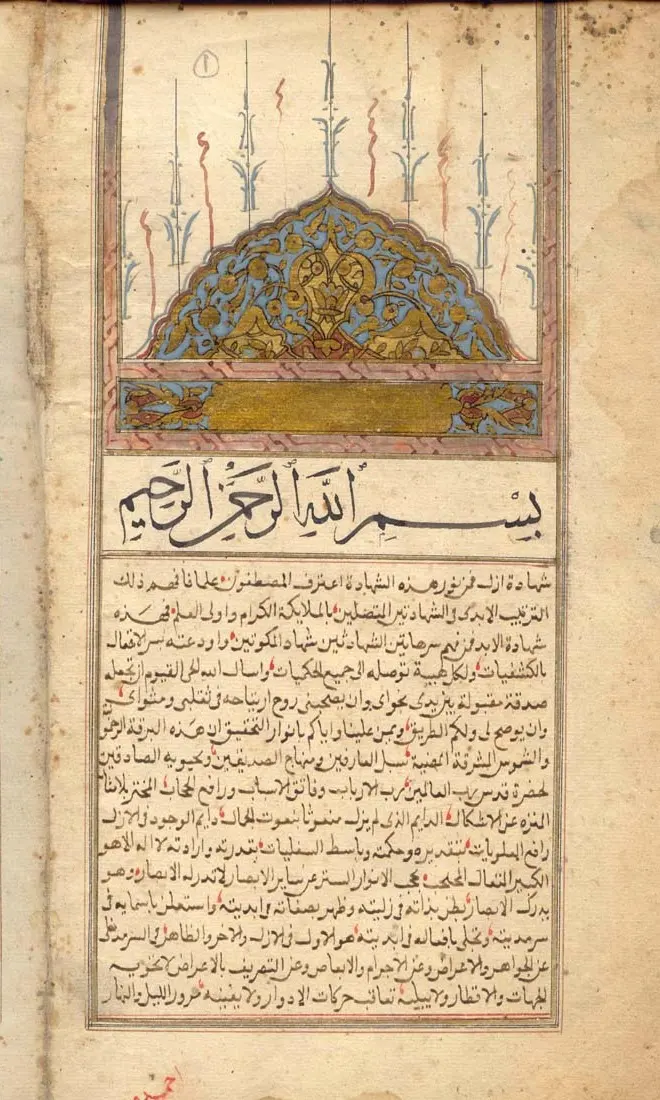 ١
بِسْمِ ٱللَّهِ ٱلرَّحْمَٰنِ ٱلرَّحِيمِ
شهادة ازل فمن نور هذه الشهادة اعترف المصطفون علمانا فهم ذلك
الترتيب الابدى فى الشهادتين المتصلين بالملايكة الكرام واولى العلم فهذه
شهادة الابد فمن فهم سر هاتين الشهادتين شهاد المكونين واودعته بسر الافعال
بالكشفيات ولكل هيبة توصله الى جميع الحكميات واسال الله الحى القيوم ان يجعله
صدقة مقبولة بين يدى نجواى وان يصحبنى روح ارتياحه فى تقلبى ومثواى
وان يوضح لى ولكم الطريق ويمن علينا واياكم بانوار التحقيق ان هذه البرقة
والشموس المشرقة المضية سبل العارفين ومنهاج الصديقين ومحبوبه الصادقين
لحضرة قدس رب العالمين رب الارباب وفاتق الاسباب ورافع الحجاب
المنزه عن الاشكال الدايم الذى لم يزل منعوتا بنعوت الجلال دايم الوجود فى الازل
رافع العلويات بتقديره وحكمته وباسط السفليات بقدرته وارادته لا اله الا هو
الكبير المتعال المحتجب بحجب الانوار الستر عن ساير الابصار لا تدركه الابصار وهو
يدرك الابصار بطن بذاته فى ازليته وظهر بصفاته فى ابديته واستعلن باسمايه فى
سرمديته وتجلى بافعاله فى ابديته هو الاول فى الازل والاخر والظاهر فى السرمد
عن الجواهر والاعراض وعن الاجرام والابعاض وعن التصريف بالاعراض لا تحويه
الجهات والاقطار ولا يبليه تعاقب حركات الادوار ولا يفنيه مرور الليل والنهار